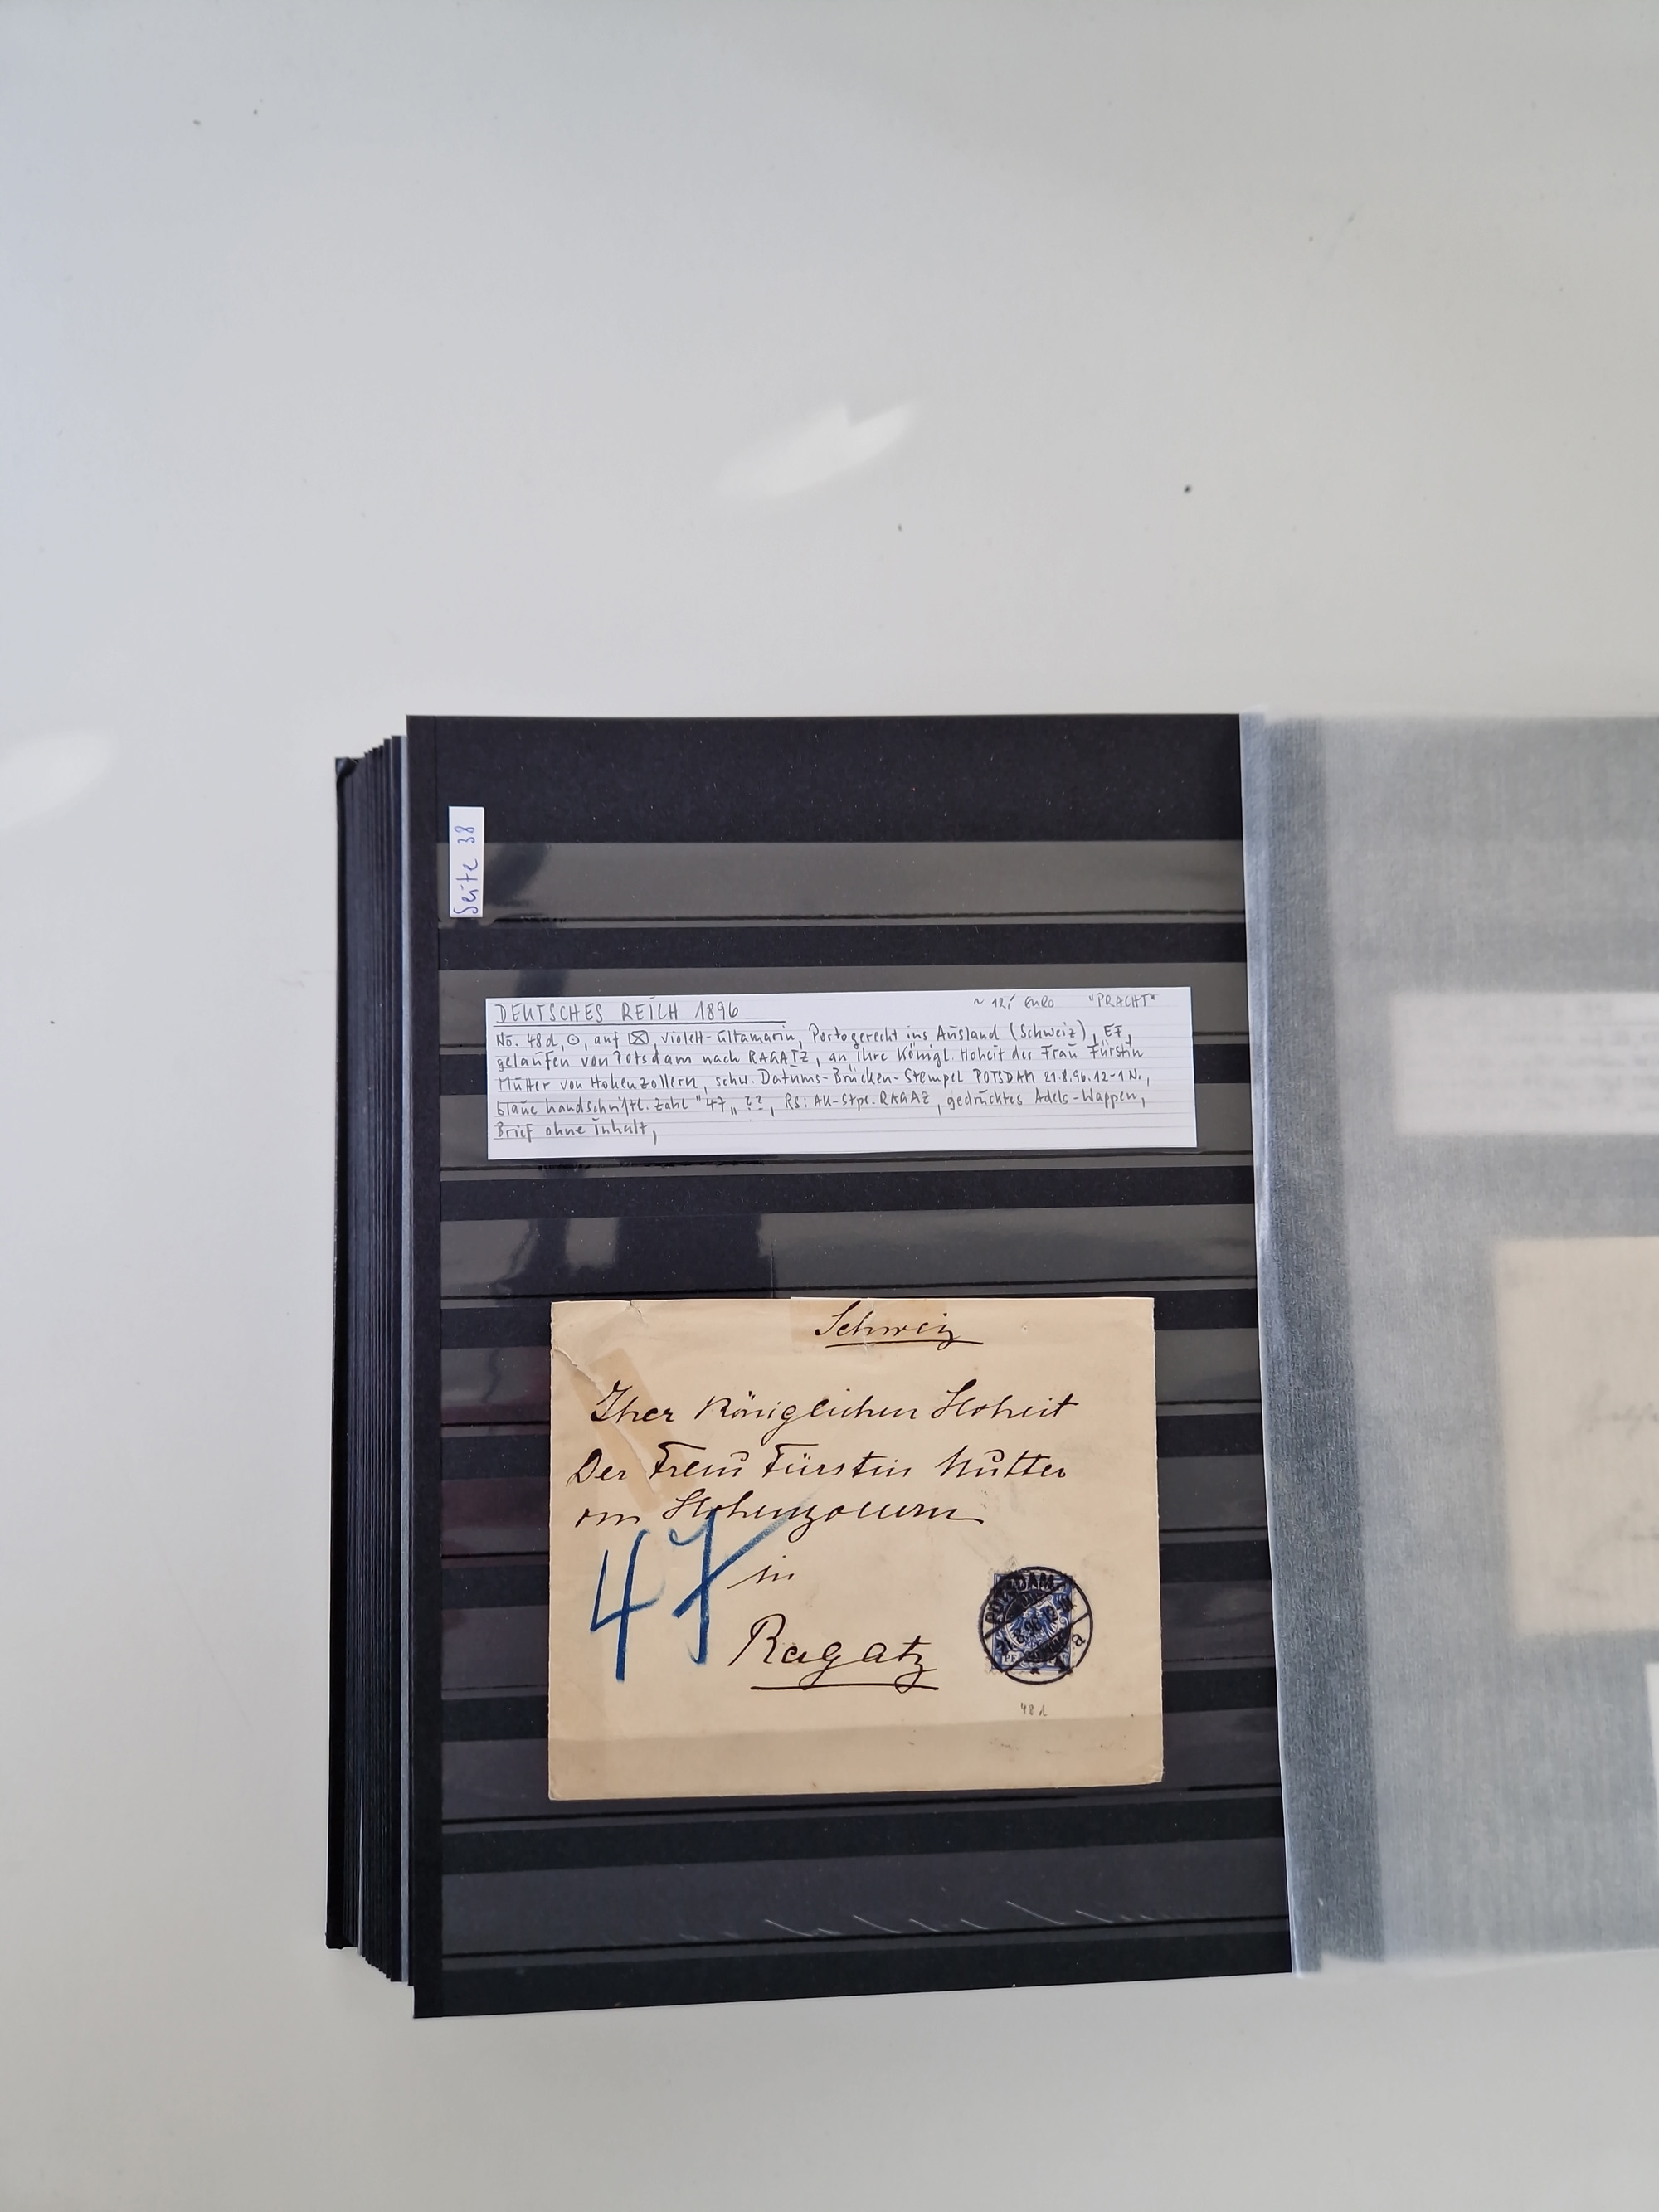 Seite 38
DEUTSCHES REICH 1896 ~ 12,- EURO "PRACHT"
No. 48d, ⊙, auf ⊠, violett-ultramarin, Portogerecht ins Ausland (Schweiz), EF,
gelaufen von Potsdam nach RAGATZ, an Ihre Königl. Hoheit der Frau Fürstin
Mutter von Hohenzollern, schw. Datums-Brücken-Stempel POTSDAM 21.8.96.12-1N.,
blaue handschriftl. Zahl "47" ??, RS: AK-Stpl. RAGAZ, gedrucktes Adels-Wappen,
Brief ohne Inhalt,
Schweiz
Ihrer Königlichen Hoheit
Der Frau Fürstin Mutter
von Hohenzollern
47 in
Ragatz
POTSDAM
21.8.96.12-1N
a
PF
48d